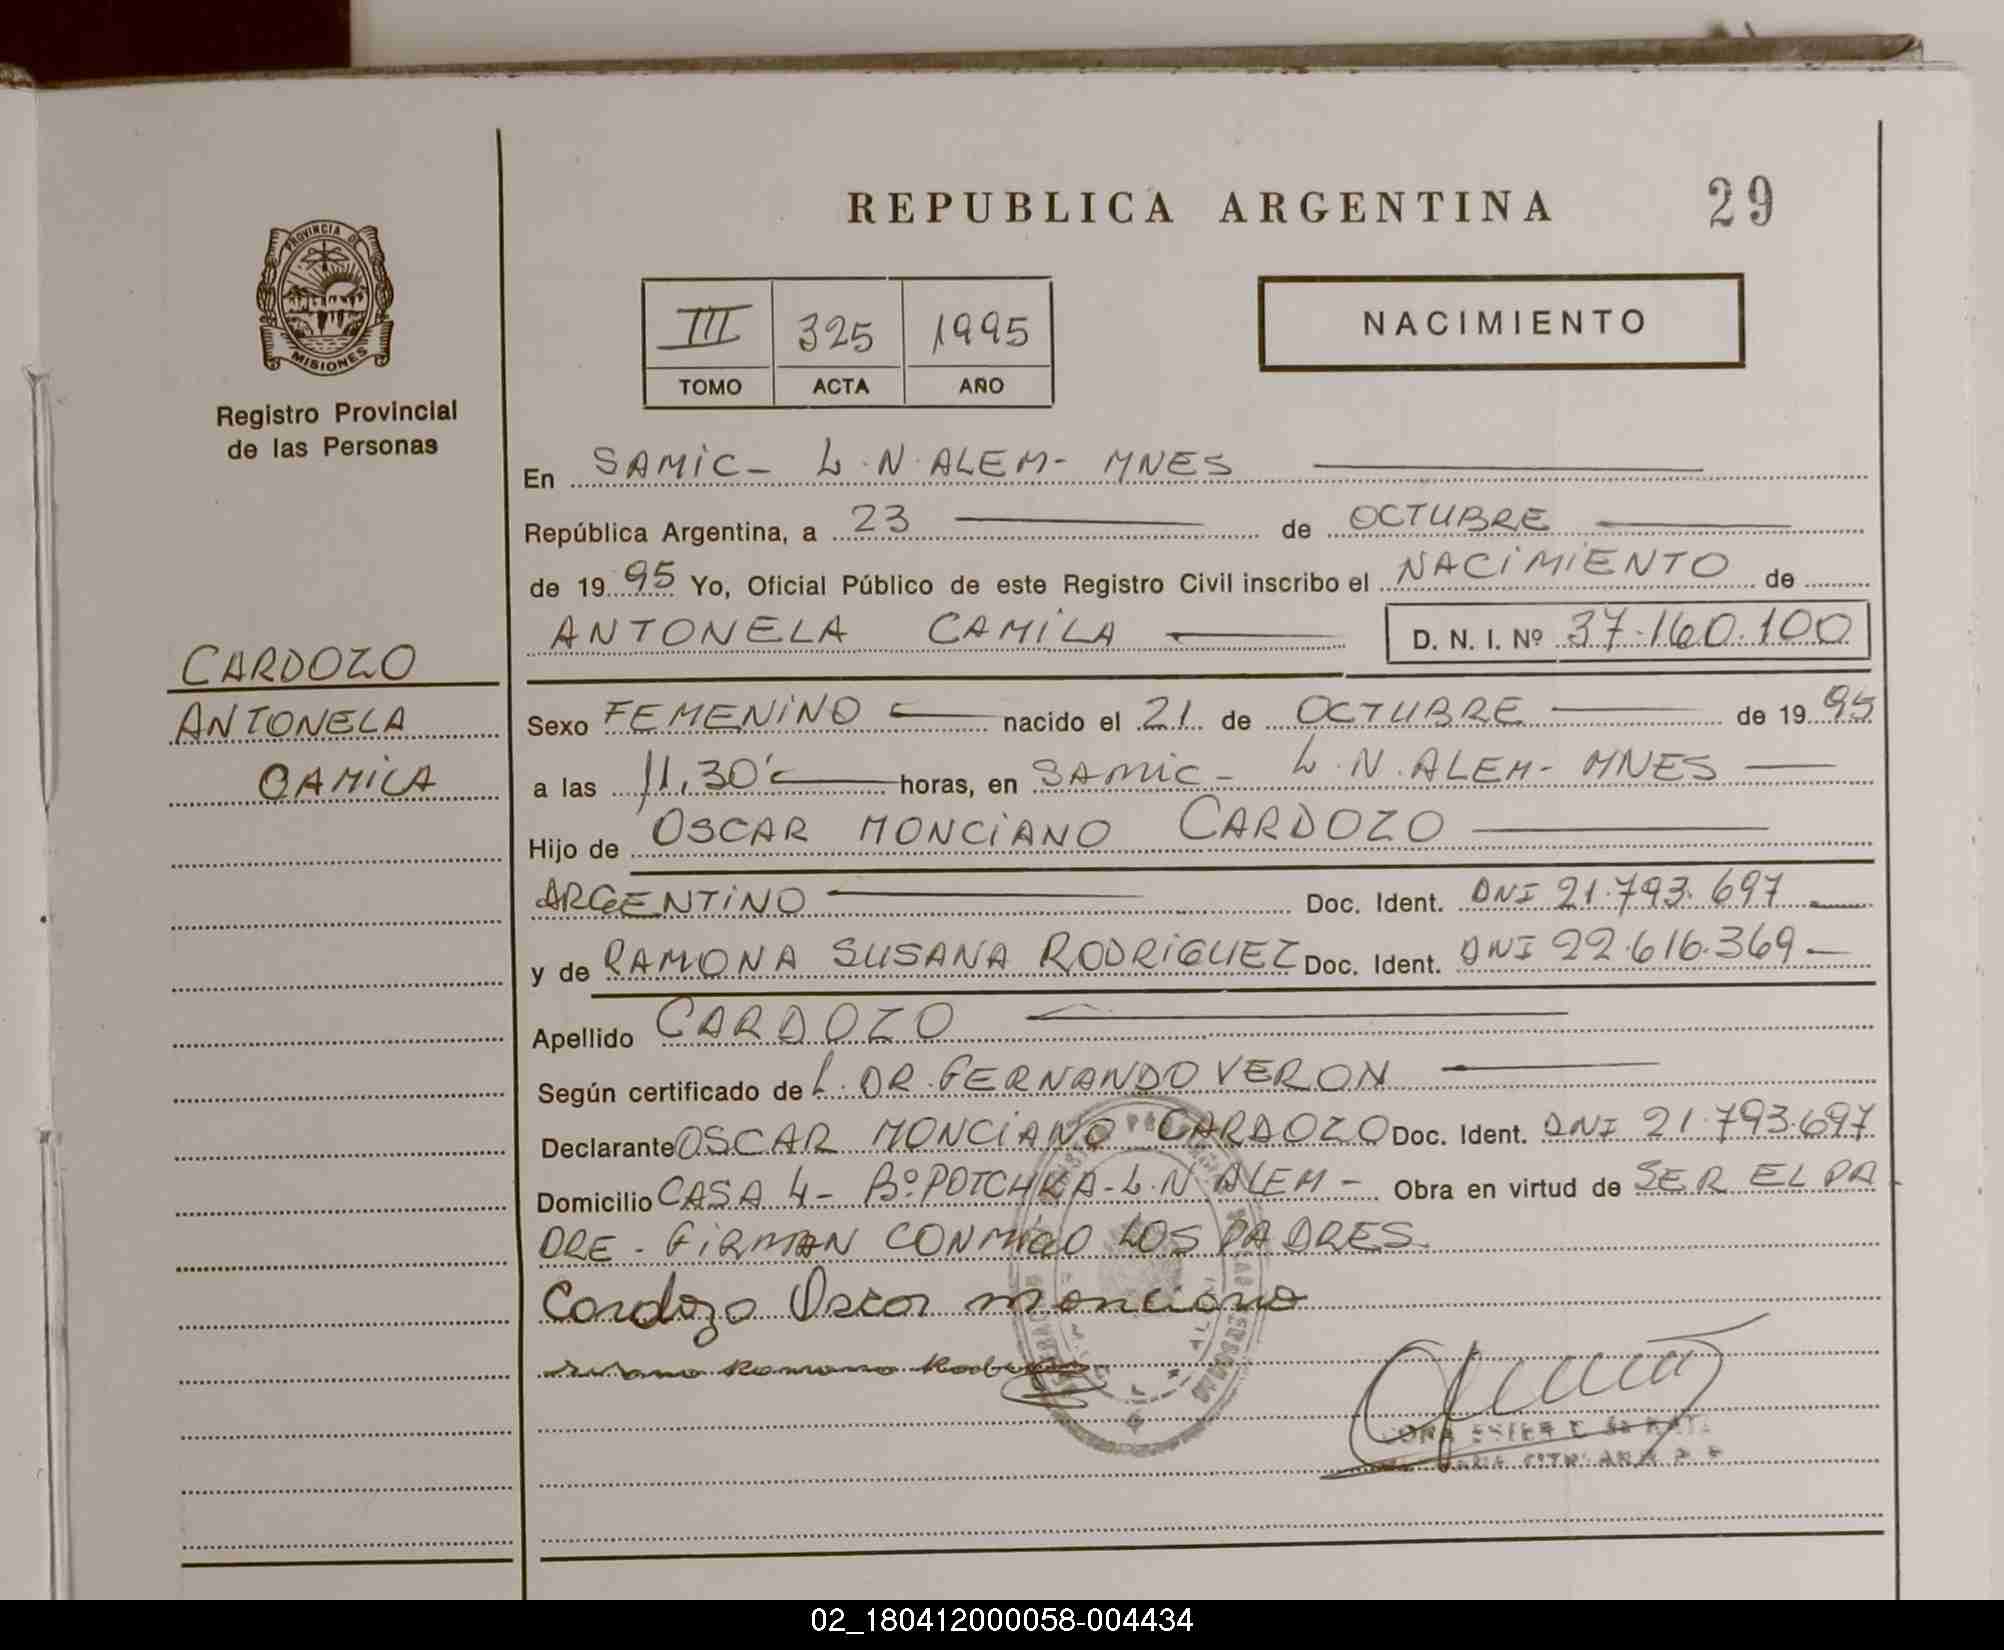 REPUBLICA ARGENTINA
29
PROVINCIA DE
MISIONES
Registro Provincial
de las Personas
III 325 1995
TOMO ACTA AÑO
NACIMIENTO
En SAMIC- L.N.ALEM- MNES
República Argentina, a 23 de OCTUBRE
de 1995 Yo, Oficial Público de este Registro Civil inscribo el NACIMIENTO de
ANTONELA CAMILA D. N. I. Nº 37.160.100
CARDOZO
ANTONELA
CAMILA
Sexo FEMENINO nacido el 21 de OCTUBRE de 1995
a las 11,30' horas, en SAMIC- L.N.ALEM- MNES
Hijo de OSCAR MONCIANO CARDOZO
ARGENTINO Doc. Ident. DNI 21.793.697
y de RAMONA SUSANA RODRIGUEZ Doc. Ident. DNI 22.616.369
Apellido CARDOZO
Según certificado de L. DR. FERNANDO VERON
Declarante OSCAR MONCIANO CARDOZO Doc. Ident. DNI 21.793.697
Domicilio CASA 4- Bº POTCHKA-L.N.ALEM- Obra en virtud de SER EL PA
DRE - FIRMAN CONMIGO LOS PADRES.
Cardozo Oscar monciano
02_180412000058-004434